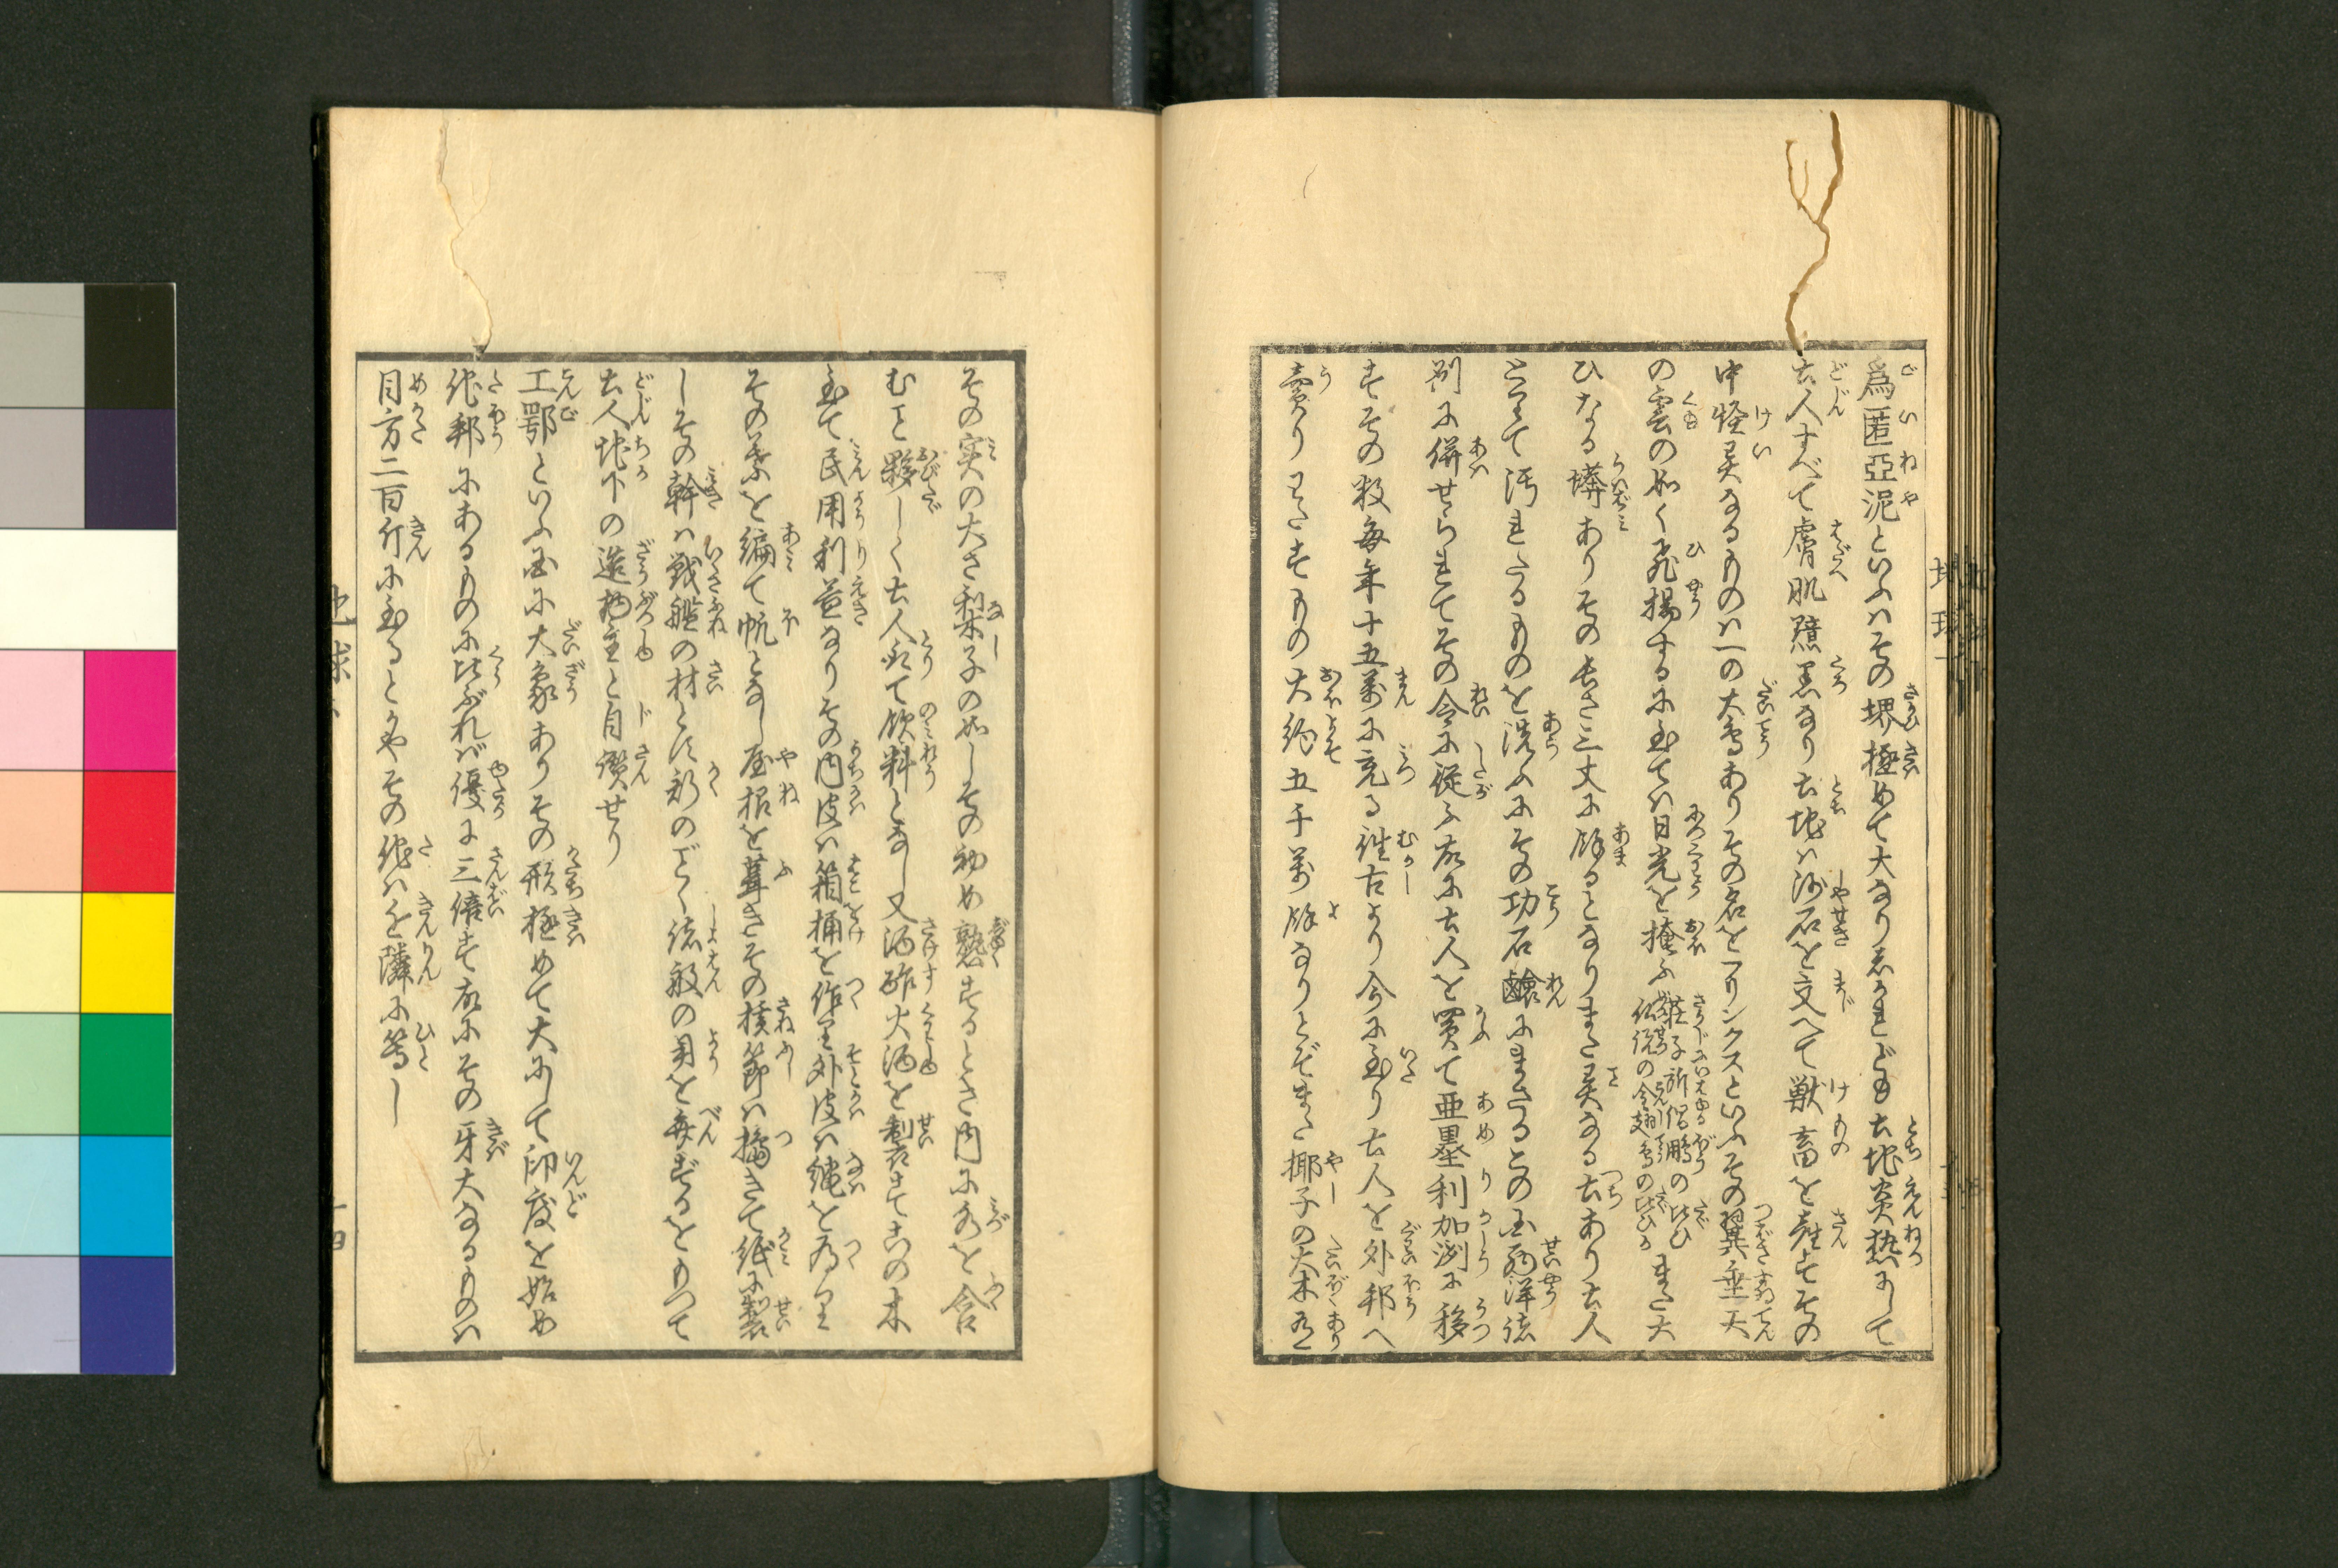 為匿亞泥といふハその堺極めて大なりしかれども土地炎熱にして
土人すべて膚肌黯黒なり土地ハ沙石を交へて獣畜を産すその
中怪異なるものハ一の大鳥ありその名をフリンクスといふその翼垂天
の雲の如く飛揚するに至てハ日光を掩ふ
荘子所謂鵬の比ひ
仏経の金翅鳥の比ひか
また大
ひなる蟒ありその長さ三丈に餘るとなりまた異なる土あり土人
とりて汚れたるものを洗ふにその功石鹼にまさるとの西洋諸
州に併せられてその令に従ふ故に土人を買て亜墨利加洲に移
すその数毎年十五萬に充る往古より今に至り土人を外邦へ
賣りわたすもの大約五千萬餘なりとぞまた椰子の大木有
その実の大さ梨子の如しその初め熟するとき内に水を含
むこと夥しく土人取て飲料となし又酒酢火酒を製すこの木
至て民用利益なりその内皮ハ箱桶を作り外皮ハ縄を為り
その葉を編て帆となし屋根を葺きその核節ハ搗きて紙に製
しその幹ハ戦艦の材とす斯のごく諸般の用を弁ずるをもつて
土人地下の造物主と自讃せり
工鄂といふ国に大象ありその形極めて大にして印度を始め
他邦にあるものに比ぶれバ優に三倍す故にその牙大なるものハ
目方二百斤に至るとかやその他ハを隣に等し
地球